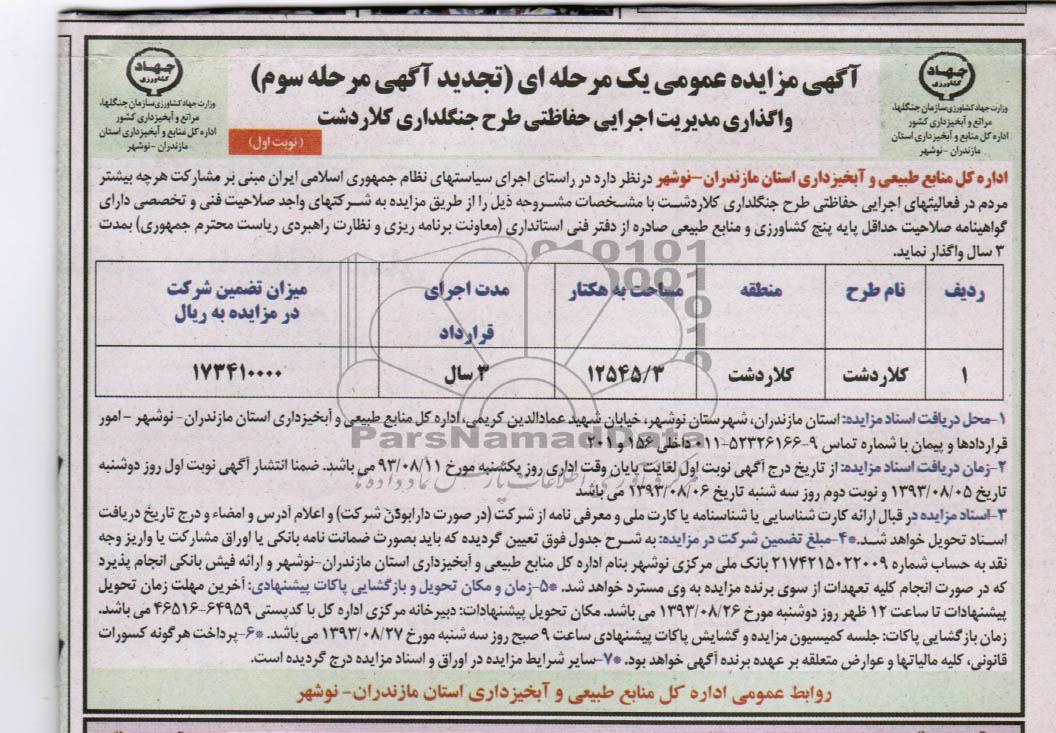 جهاد
کشاورزی
وزارت جهاد کشاورزی سازمان جنگلها،
مراتع و آبخیزداری کشور
اداره کل منابع و آبخیزداری استان
مازندران - نوشهر
آگهی مزایده عمومی یک مرحله ای (تجدید آگهی مرحله سوم)
واگذاری مدیریت اجرایی حفاظتی طرح جنگلداری کلاردشت
(نوبت اول)
جهاد
کشاورزی
وزارت جهاد کشاورزی سازمان جنگلها،
مراتع و آبخیزداری کشور
اداره کل منابع و آبخیزداری استان
مازندران - نوشهر
اداره کل منابع طبیعی و آبخیزداری استان مازندران-نوشهر درنظر دارد در راستای اجرای سیاستهای نظام جمهوری اسلامی ایران مبنی بر مشارکت هرچه بیشتر
مردم در فعالیتهای اجرایی حفاظتی طرح جنگلداری کلاردشت با مشخصات مشروحه ذیل را از طریق مزایده به شرکتهای واجد صلاحیت فنی و تخصصی دارای
گواهینامه صلاحیت حداقل پایه پنج کشاورزی و منابع طبیعی صادره از دفتر فنی استانداری (معاونت برنامه ریزی و نظارت راهبردی ریاست محترم جمهوری) بمدت
۳ سال واگذار نماید.
ردیف نام طرح منطقه مساحت به هکتار مدت اجرای قرارداد میزان تضمین شرکت در مزایده به ریال
۱ کلاردشت کلاردشت ۱۲۵۴۵/۳ ۳ سال ۱۷۳۴۱۰۰۰۰
۱-محل دریافت اسناد مزایده: استان مازندران، شهرستان نوشهر، خیابان شهید عمادالدین کریمی، اداره کل منابع طبیعی و آبخیزداری استان مازندران- نوشهر - امور
قراردادها و پیمان با شماره تماس ۹-۵۲۳۲۶۱۶۶-۰۱۱ داخلی ۱۵۶ و ۲۰۱
۲-زمان دریافت اسناد مزایده: از تاریخ درج آگهی نوبت اول لغایت پایان وقت اداری روز یکشنبه مورخ ۹۳/۰۸/۱۱ می باشد. ضمنا انتشار آگهی نوبت اول روز دوشنبه
تاریخ ۱۳۹۳/۰۸/۰۵ و نوبت دوم روز سه شنبه تاریخ ۱۳۹۳/۰۸/۰۶ می باشد
۳-اسناد مزایده در قبال ارائه کارت شناسایی یا شناسنامه یا کارت ملی و معرفی نامه از شرکت (در صورت دارابودن شرکت) و اعلام آدرس و امضاء و درج تاریخ دریافت
اسناد تحویل خواهد شد.*۴-مبلغ تضمین شرکت در مزایده: به شرح جدول فوق تعیین گردیده که باید بصورت ضمانت نامه بانکی یا اوراق مشارکت یا واریز وجه
نقد به حساب شماره ۲۱۷۴۲۱۵۰۲۲۰۰۹ بانک ملی مرکزی نوشهر بنام اداره کل منابع طبیعی و آبخیزداری استان مازندران-نوشهر و ارائه فیش بانکی انجام پذیرد
که در صورت انجام کلیه تعهدات از سوی برنده مزایده به وی مسترد خواهد شد. *۵-زمان و مکان تحویل و بازگشایی پاکات پیشنهادی: آخرین مهلت زمان تحویل
پیشنهادات تا ساعت ۱۲ ظهر روز دوشنبه مورخ ۱۳۹۳/۰۸/۲۶ می باشد. مکان تحویل پیشنهادات: دبیرخانه مرکزی اداره کل با کدپستی ۶۴۹۵۹-۴۶۵۱۶ می باشد.
زمان بازگشایی پاکات: جلسه کمیسیون مزایده و گشایش پاکات پیشنهادی ساعت ۹ صبح روز سه شنبه مورخ ۱۳۹۳/۰۸/۲۷ می باشد. *۶-پرداخت هرگونه کسورات
قانونی، کلیه مالیاتها و عوارض متعلقه بر عهده برنده آگهی خواهد بود. *۷-سایر شرایط مزایده در اوراق و اسناد مزایده درج گردیده است.
روابط عمومی اداره کل منابع طبیعی و آبخیزداری استان مازندران- نوشهر
ParsNamadData